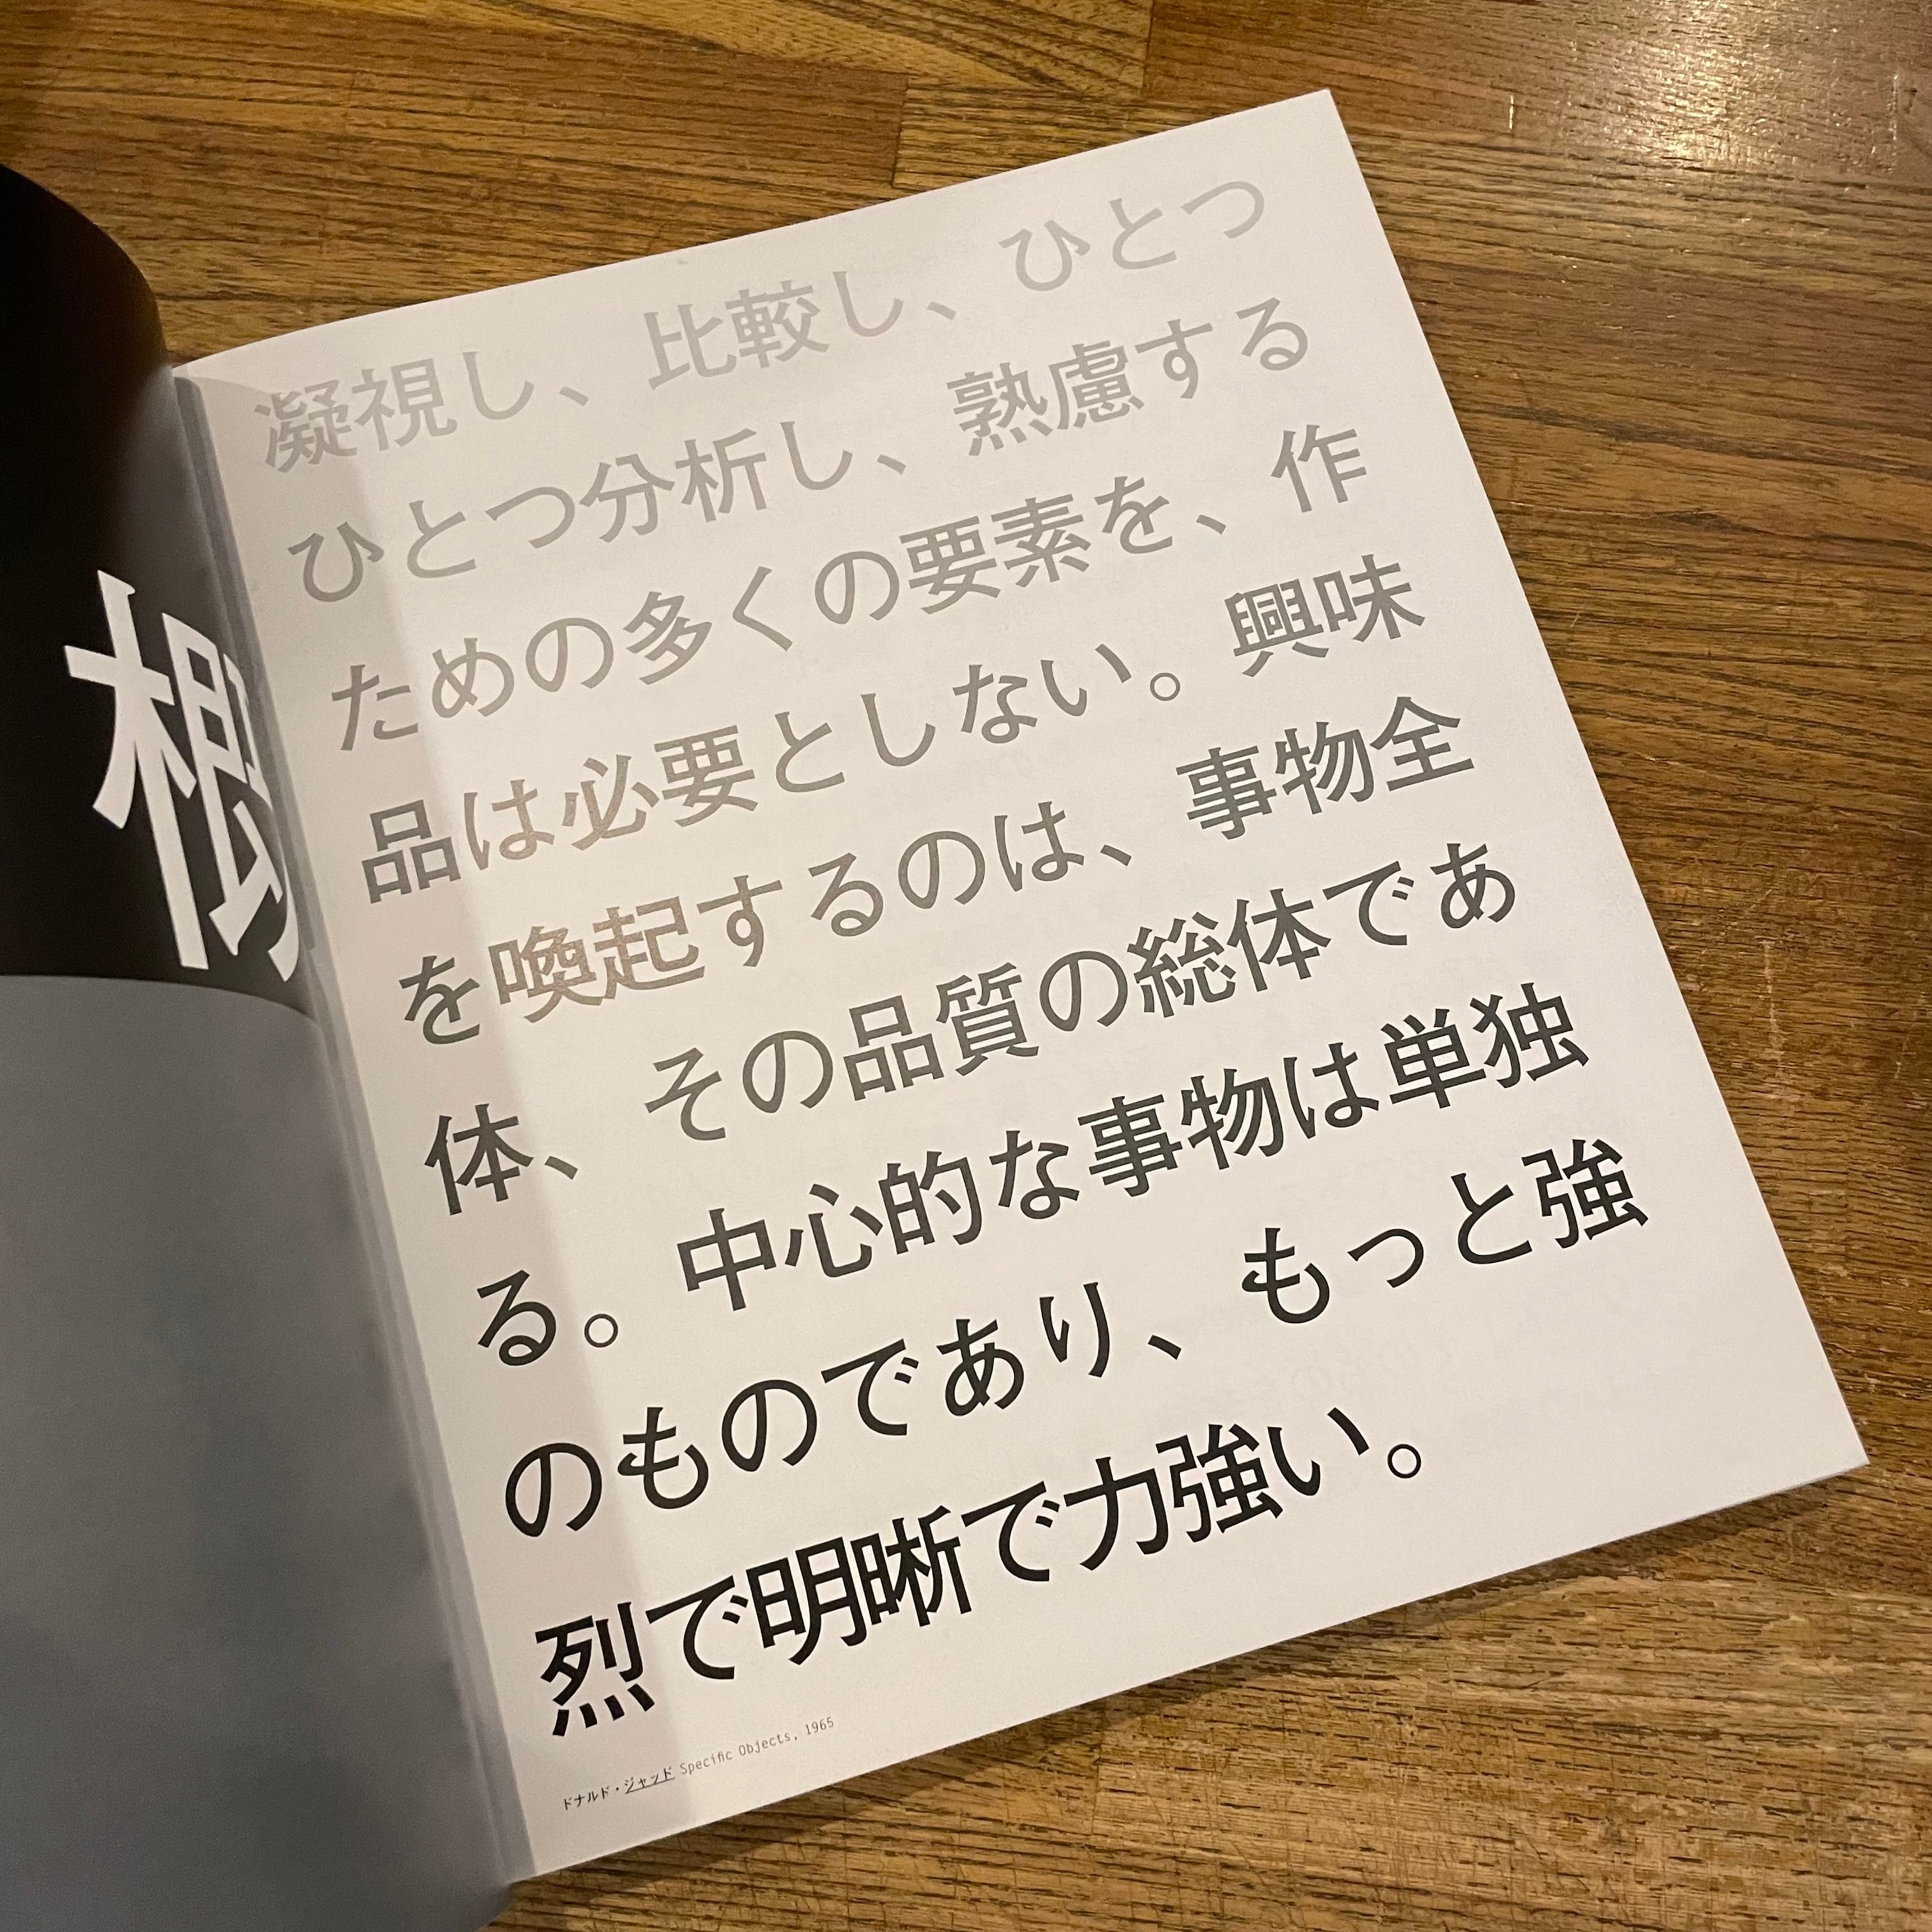 根
凝視し、比較し、ひとつ
ひとつ分析し、熟慮する
ための多くの要素を、作
品は必要としない。興味
を喚起するのは、事物全
体、その品質の総体であ
る。中心的な事物は単独
のものであり、もっと強
烈で明晰で力強い。
ドナルド・ジャッド Specific Objects, 1965